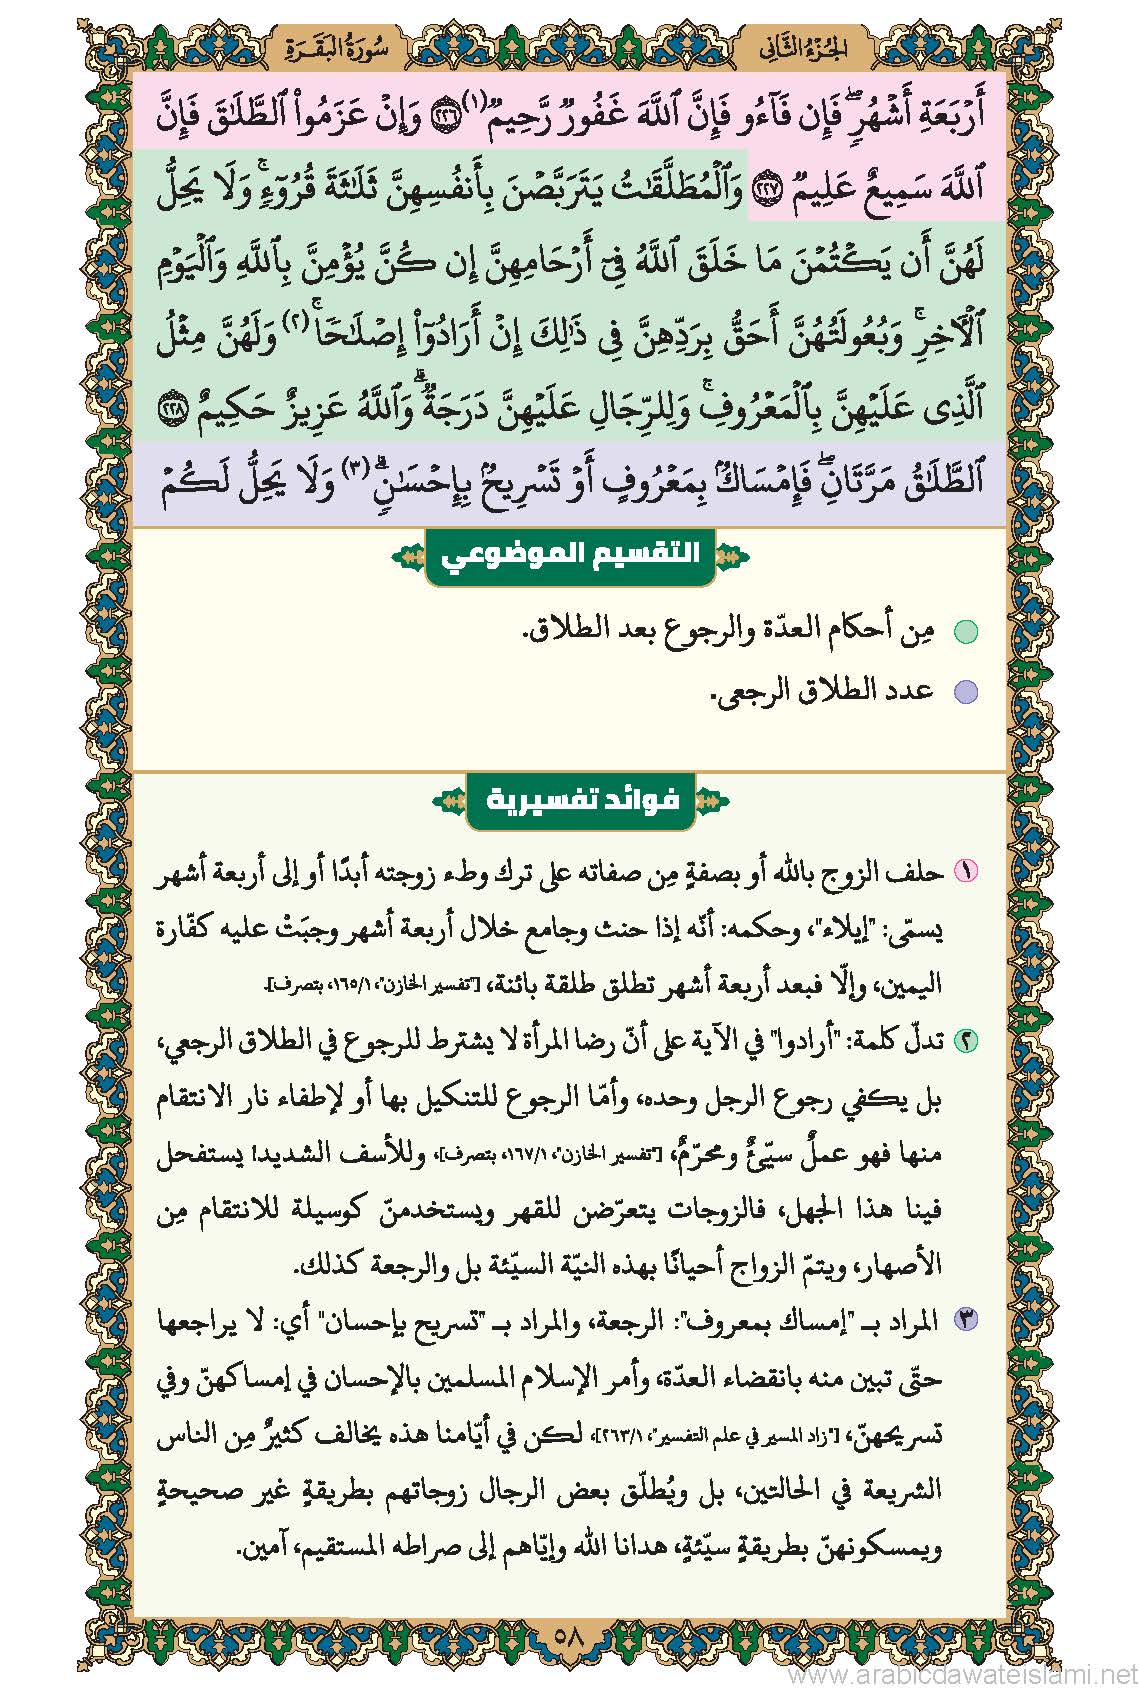 الجُزْءُ الثَّانِی
سُورَةُ الْبَقَرَةِ
أَرۡبَعَةِ أَشۡهُرٖۖ فَإِن فَآءُو فَإِنَّ ٱللَّهَ غَفُورٞ رَّحِيمٞ(١) ٢٢٦ وَإِنۡ عَزَمُواْ ٱلطَّلَٰقَ فَإِنَّ
ٱللَّهَ سَمِيعٌ عَلِيمٞ ٢٢٧ وَٱلۡمُطَلَّقَٰتُ يَتَرَبَّصۡنَ بِأَنفُسِهِنَّ ثَلَٰثَةَ قُرُوٓءٖۚ وَلَا يَحِلُّ
لَهُنَّ أَن يَكۡتُمۡنَ مَا خَلَقَ ٱللَّهُ فِيٓ أَرۡحَامِهِنَّ إِن كُنَّ يُؤۡمِنَّ بِٱللَّهِ وَٱلۡيَوۡمِ
ٱلۡأٓخِرِۚ وَبُعُولَتُهُنَّ أَحَقُّ بِرَدِّهِنَّ فِي ذَٰلِكَ إِنۡ أَرَادُوٓاْ إِصۡلَٰحٗاۚ(٢) وَلَهُنَّ مِثۡلُ
ٱلَّذِي عَلَيۡهِنَّ بِٱلۡمَعۡرُوفِۚ وَلِلرِّجَالِ عَلَيۡهِنَّ دَرَجَةٞۗ وَٱللَّهُ عَزِيزٌ حَكِيمٌ ٢٢٨
ٱلطَّلَٰقُ مَرَّتَانِۖ فَإِمۡسَاكُۢ بِمَعۡرُوفٍ أَوۡ تَسۡرِيحُۢ بِإِحۡسَٰنٖۗ(٣) وَلَا يَحِلُّ لَكُمۡ
التقسيم الموضوعي
مِن أحكام العدّة والرجوع بعد الطلاق.
عدد الطلاق الرجعي.
فوائد تفسيرية
١ حلف الزوج بالله أو بصفةٍ مِن صفاته على ترك وطء زوجته أبدًا أو إلى أربعة أشهر
يسمّى: "إيلاء"، وحكمه: أنّه إذا حنث وجامع خلال أربعة أشهر وجبَتْ عليه كفّارة
اليمين، وإلّا فبعد أربعة أشهر تطلق طلقة بائنة، ["تفسير الخازن"، ١/١٦٥، بتصرف].
٢ تدلّ كلمة: "أرادوا" في الآية على أنّ رضا المرأة لا يشترط للرجوع في الطلاق الرجعي،
بل يكفي رجوع الرجل وحده، وأمّا الرجوع للتنكيل بها أو لإطفاء نار الانتقام
منها فهو عملٌ سيّئٌ ومحرّمٌ، ["تفسير الخازن"، ١/١٦٧، بتصرف]، وللأسف الشديد! يستفحل
فينا هذا الجهل، فالزوجات يتعرّضن للقهر ويستخدمنّ كوسيلة للانتقام مِن
الأصهار، ويتمّ الزواج أحيانًا بهذه النيّة السيّئة بل والرجعة كذلك.
٣ المراد بـ "إمساك بمعروف": الرجعة، والمراد بـ "تسريح بإحسان" أي: لا يراجعها
حتّى تبين منه بانقضاء العدّة، وأمر الإسلام المسلمين بالإحسان في إمساكهنّ وفي
تسريحهنّ، ["زاد المسير في علم التفسير"، ١/٢٦٣]، لكن في أيّامنا هذه يخالف كثيرٌ مِن الناس
الشريعة في الحالتين، بل ويُطلّق بعض الرجال زوجاتهم بطريقةٍ غير صحيحةٍ
ويمسكونهنّ بطريقةٍ سيّئةٍ، هدانا الله وإيّاهم إلى صراطه المستقيم، آمين.
٥٨
www.arabicdawateislami.net